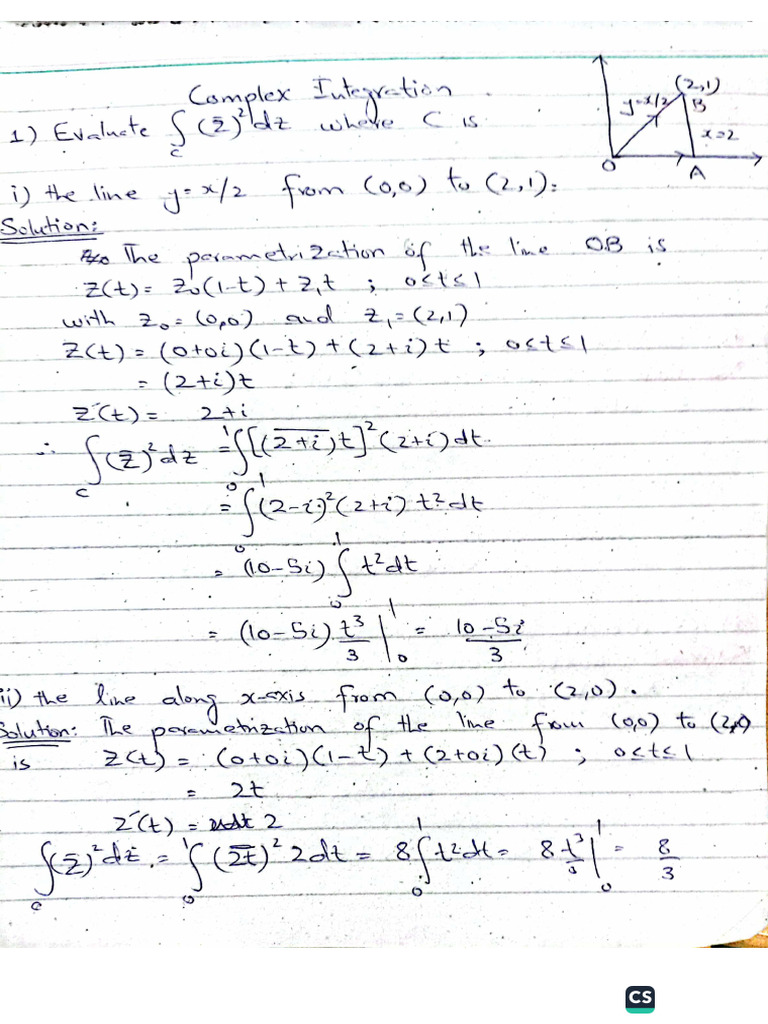 Complex Integration
1) Evaluate ∫_C (z̄)² dz where C is
(2,1)
y=x/2
B
x=2
O
A
i) the line y=x/2 from (0,0) to (2,1):
Solution:
The parametrization of the line OB is
z(t) = z₀(1-t) + z₁t ; 0≤t≤1
with z₀=(0,0) and z₁=(2,1)
z(t) = (0+0i)(1-t)+(2+i)t ; 0≤t≤1
= (2+i)t
z'(t) = 2+i
∴ ∫_C (z̄)² dz = ∫₀¹ [(\overline{2+i})t]² (2+i) dt.
= ∫₀¹ (2-i)² (2+i) t² dt
= (10-5i) ∫₀¹ t² dt
= (10-5i) t³/3 |₀¹ = 10-5i/3
ii) the line along x-axis from (0,0) to (2,0).
Solution: The parametrization of the line from (0,0) to (2,0)
is z(t) = (0+0i)(1-t) + (2+0i)(t) ; 0≤t≤1
= 2t
z'(t) = 2
∫_C (z̄)² dz = ∫₀¹ (\overline{2t})² 2dt = 8∫₀¹ t² dt = 8 t³/3 |₀¹ = 8/3
CS